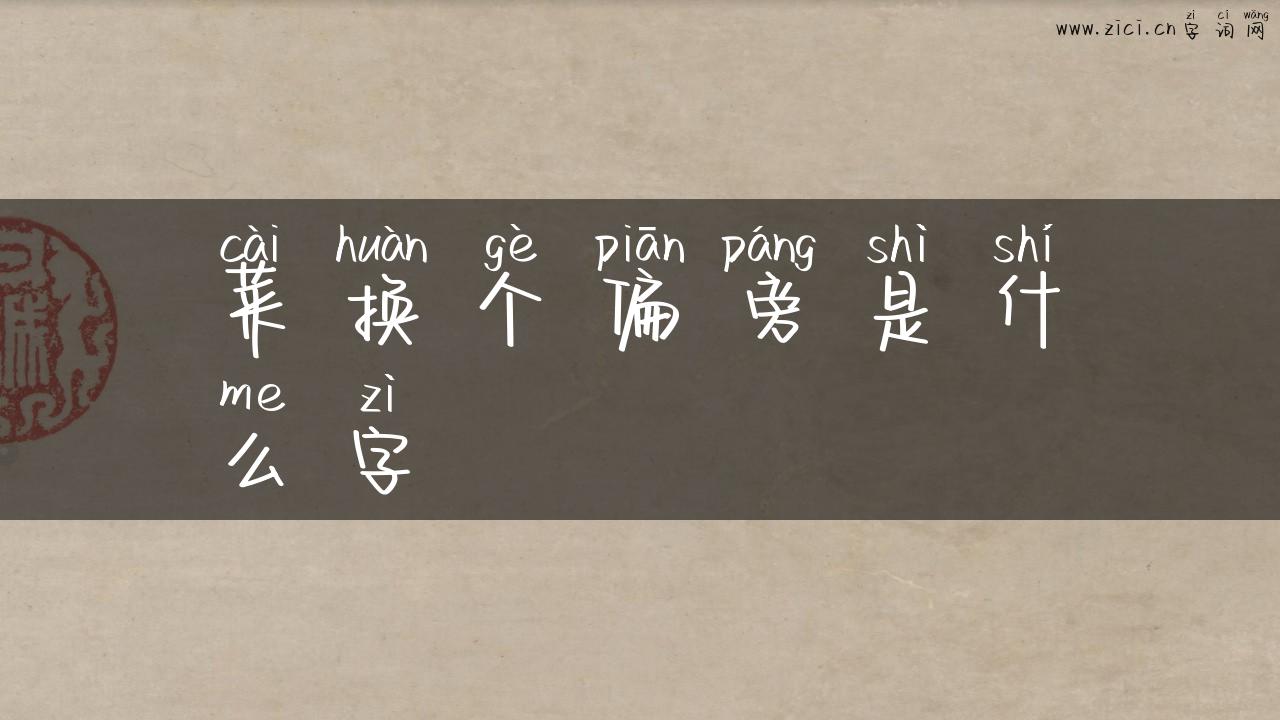 zì cí wǎng
www.zici.cn字词网
cài huàn gè piān páng shì shí
菜换个偏旁是什
me zì
么字